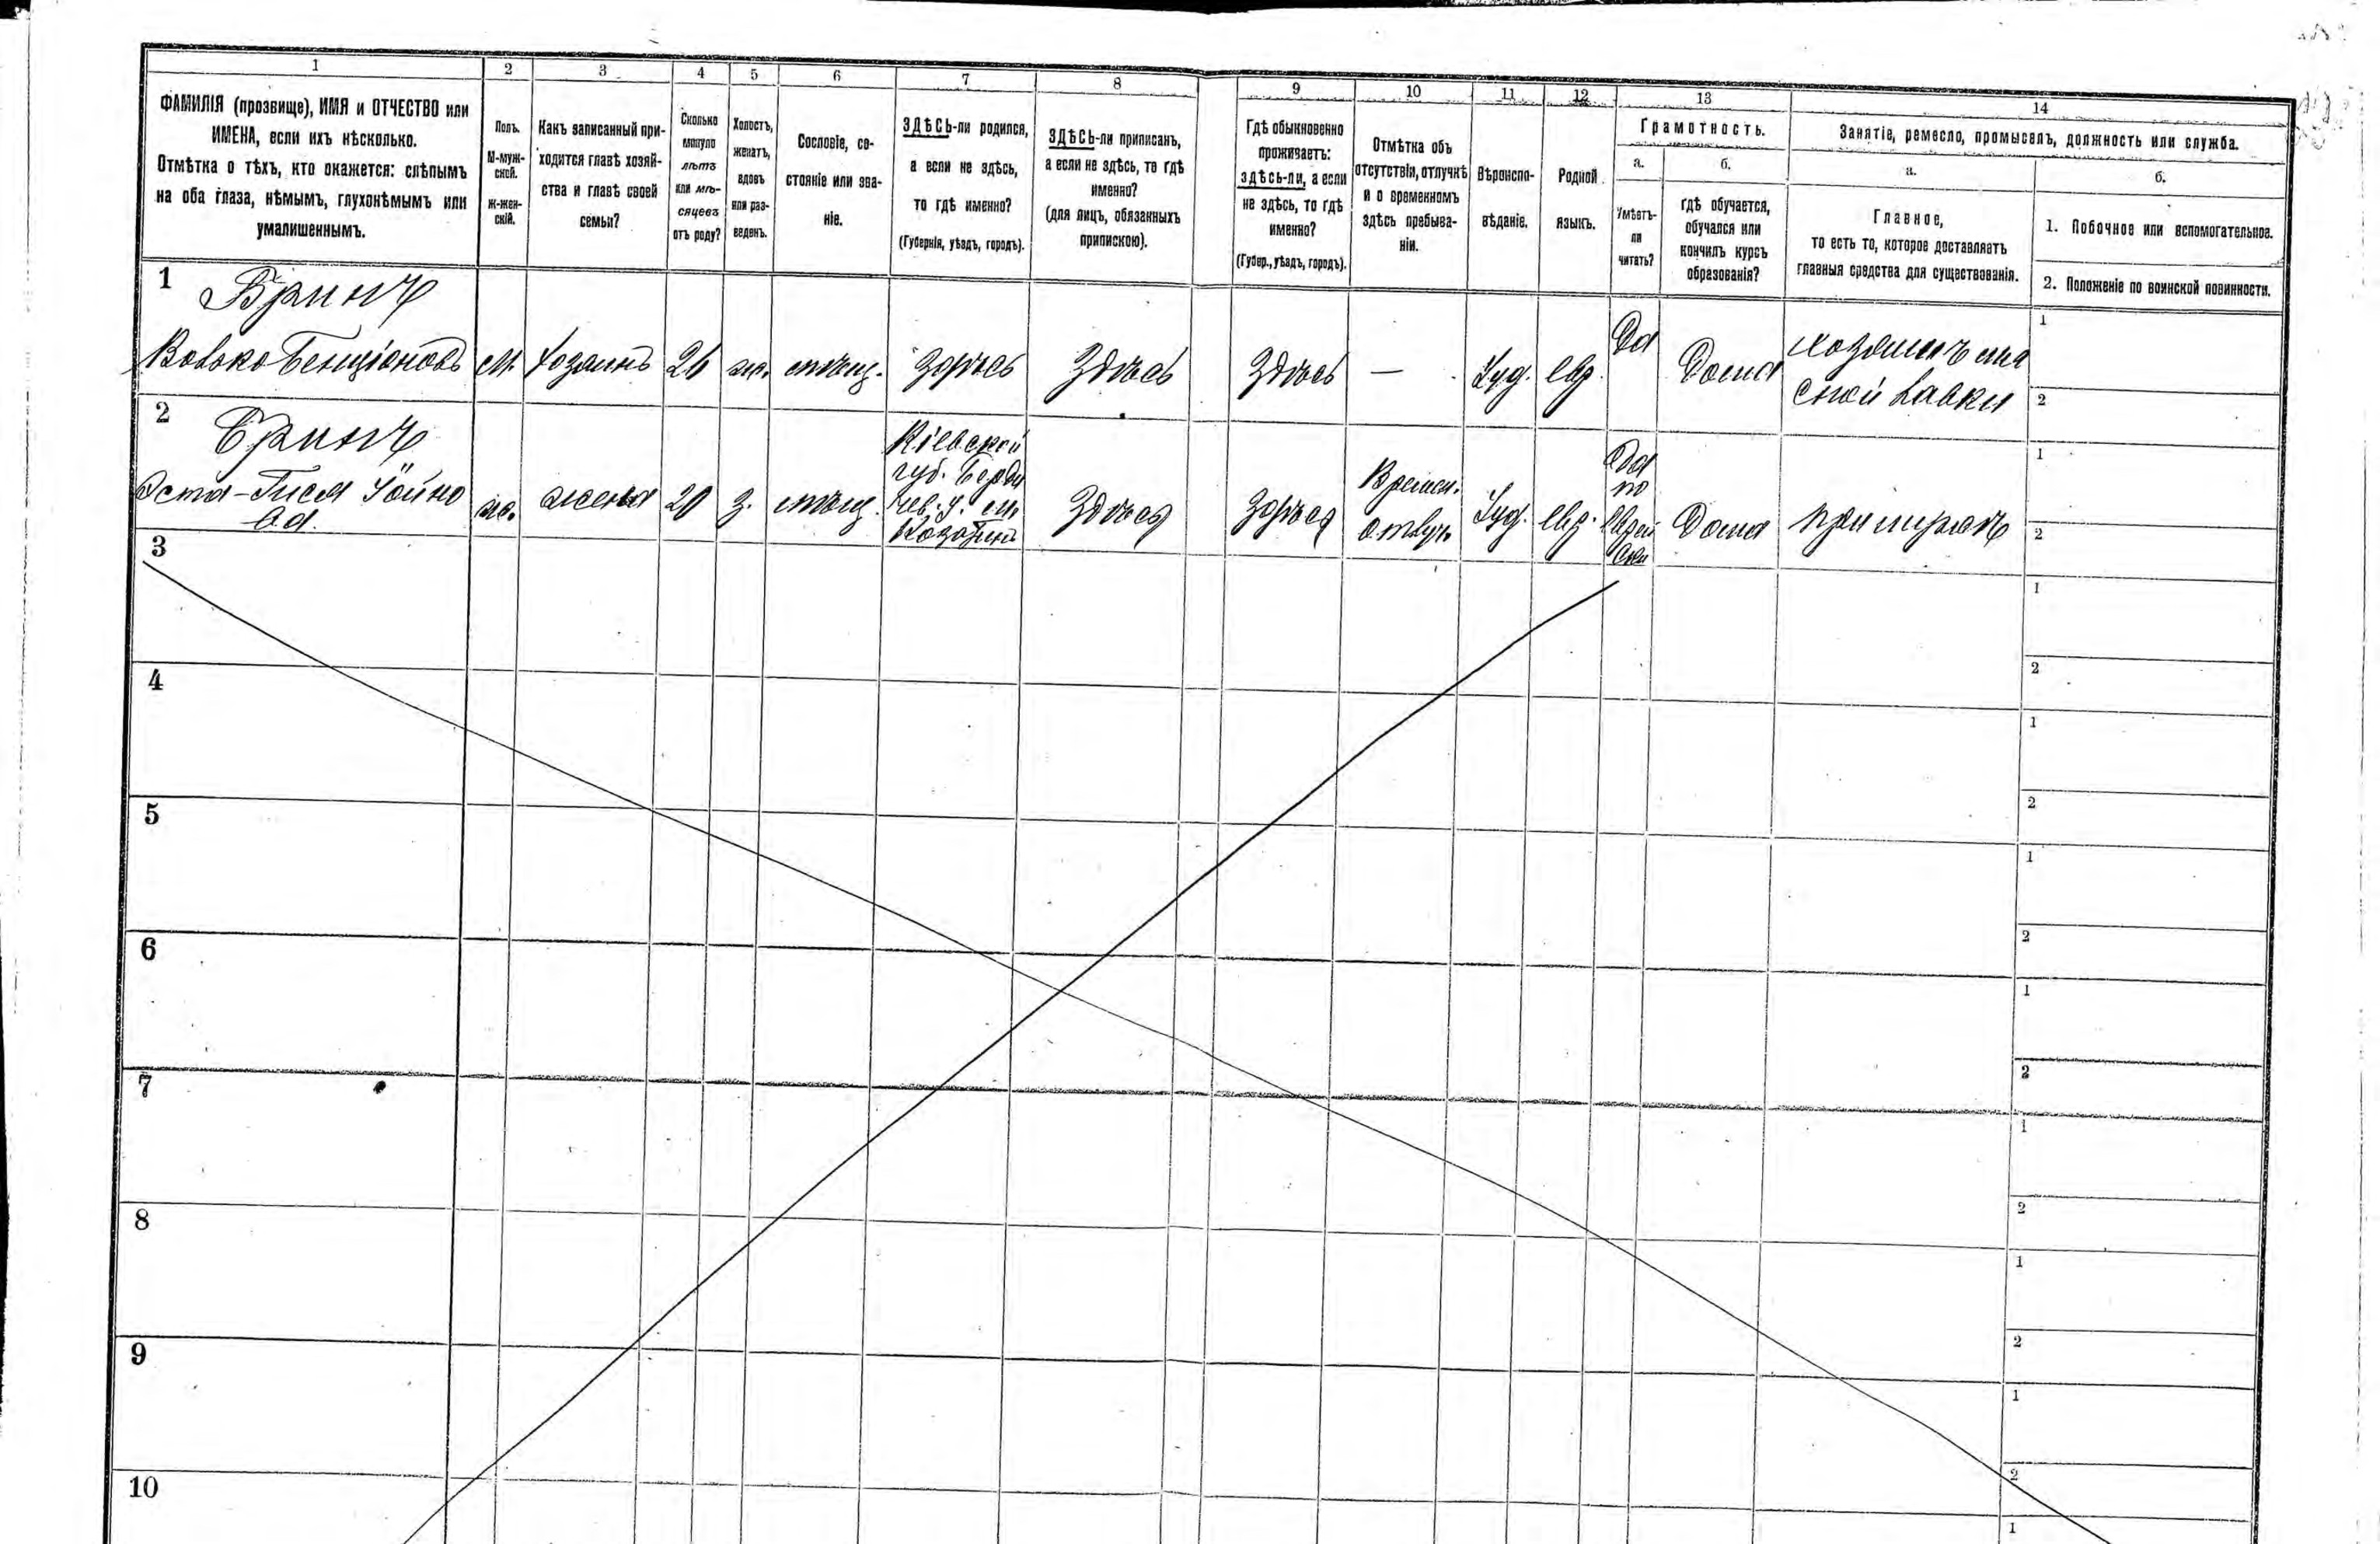 1 2 3 4 5 6 7 8 9 10 11 12 13 14
ФАМИЛІЯ (прозвище), ИМЯ и ОТЧЕСТВО или
ИМЕНА, если ихъ нѣсколько.
Отмѣтка о тѣхъ, кто окажется: слѣпымъ
на оба глаза, нѣмымъ, глухонѣмымъ или
умалишеннымъ.
Полъ.
М-муж-
ской.
Ж-жен-
скій.
Какъ записанный при-
ходится главѣ хозяй-
ства и главѣ своей
семьи?
Сколько
минуло
лѣтъ
или мѣ-
сяцевъ
отъ роду?
Холостъ,
женатъ,
вдовъ
или раз-
веденъ.
Сословіе, со-
стояніе или зва-
ніе.
ЗДѢСЬ-ли родился,
а если не здѣсь,
то гдѣ именно?
(Губернія, уѣздъ, городъ).
ЗДѢСЬ-ли приписанъ,
а если не здѣсь, то гдѣ
именно?
(для лицъ, обязанныхъ
припискою).
Гдѣ обыкновенно
проживаетъ:
здѣсь-ли, а если
не здѣсь, то гдѣ
именно?
(Губер., уѣздъ, городъ).
Отмѣтка объ
отсутствіи, отлучкѣ
и о временномъ
здѣсь пребыва-
ніи.
Вѣроиспо-
вѣданіе.
Родной
языкъ.
Грамотность.
а.
Умѣетъ-
ли
читать?
б.
гдѣ обучается,
обучался или
кончилъ курсъ
образованія?
Занятіе, ремесло, промыселъ, должность или служба.
а.
Главное,
то есть то, которое доставляетъ
главныя средства для существованія.
б.
1. Побочное или вспомогательное.
2. Положеніе по воинской повинности.
1
Бринъ
Вовко Бенціоновъ
м.
хозяинъ
26
ж.
мѣщ.
здѣсь
Здѣсь
Здѣсь
—
Іуд.
евр.
Да
Дома
хозяинъ мя
сной лавки
1
2
2
Бринъ
Эста-Гися
ж.
жена
20
з.
мѣщ.
Кіевской
губ. Берди
чев. у. м.
Козатинъ
Здѣсь
Здѣсь
Времен.
отлуч.
Іуд.
евр.
Да
по
еврей
ски
Дома
при мужѣ
1
2
3
1
2
4
1
2
5
1
2
6
1
2
7
1
2
8
1
2
9
1
2
10
1